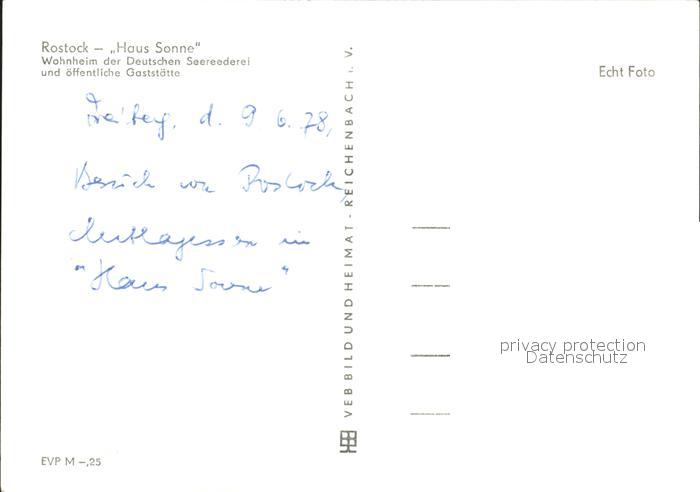 Rostock – „Haus Sonne“
Wohnheim der Deutschen Seereederei
und öffentliche Gaststätte
Echt Foto
Freitag, d. 9 6. 78,
Besuch von Rostock,
Mittagessen in
"Haus Sonne"
VEB BILD UND HEIMAT - REICHENBACH i. V.
privacy protection
Datenschutz
EVP M –,25